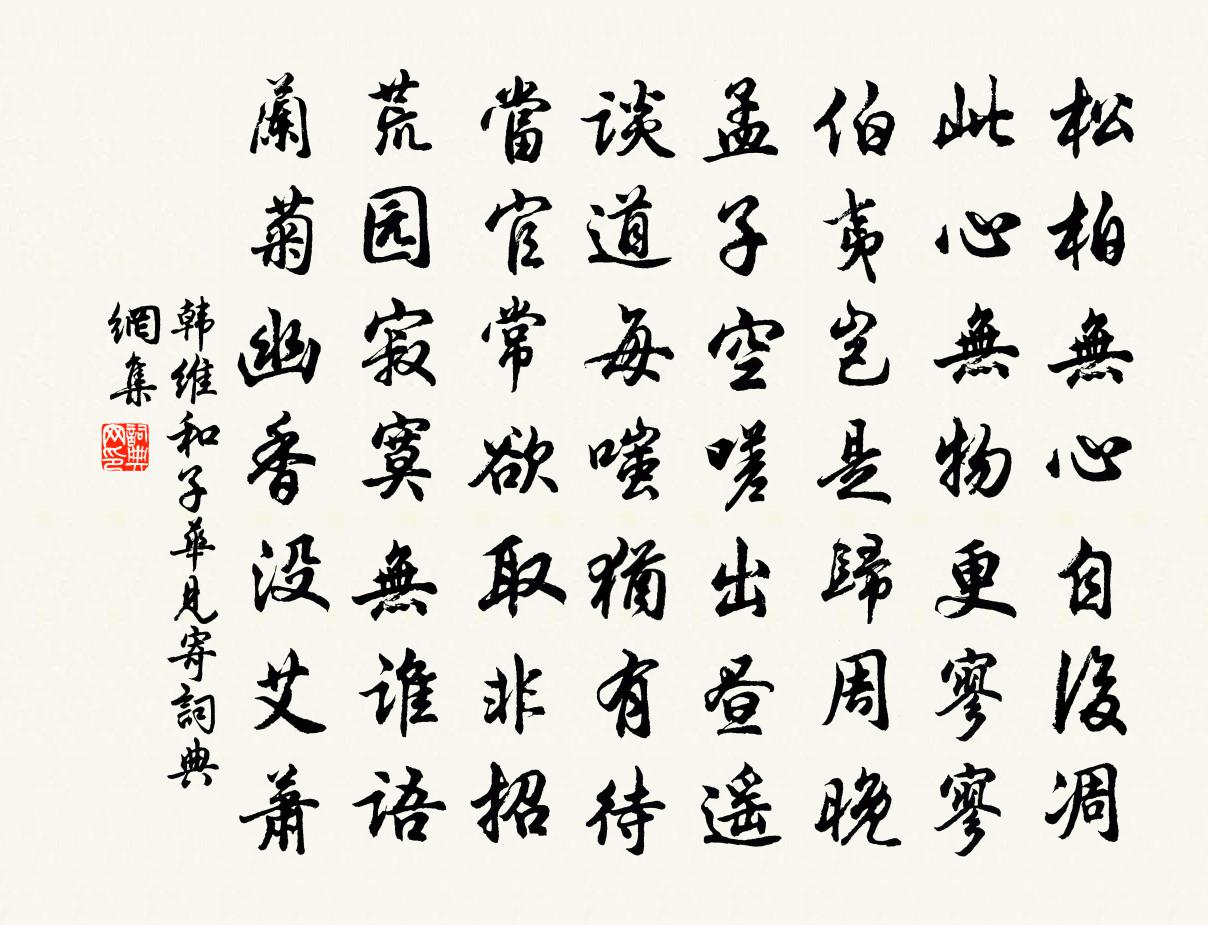 松柏無心自後凋
此心無物更寥寥
伯夷岂是歸周晚
孟子空嗟出昼遥
談道每嗤猶有待
當官常欲取非招
荒园寂寞無谁語
蘭菊幽香没艾萧
韩维和子華見寄詞典
網集
詞典
网印